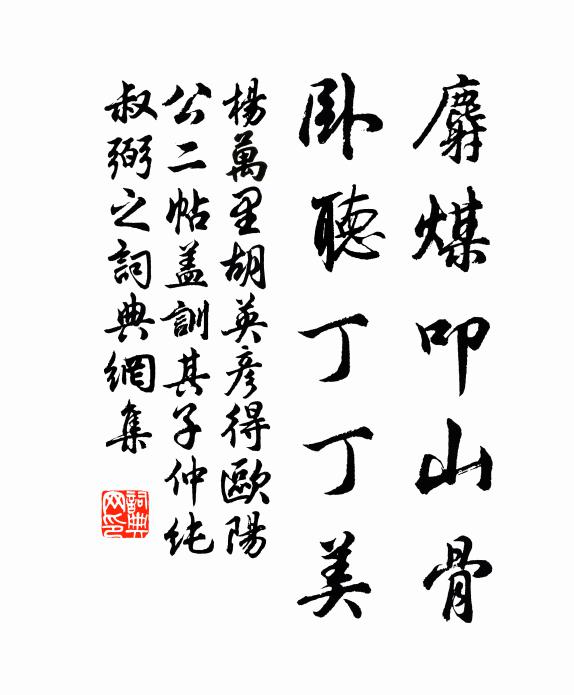 麝煤叩山骨
卧聽丁丁美
楊萬里胡英彦得歐陽
公二帖盖訓其子仲純
叔弼之詞典網集
詞典网印